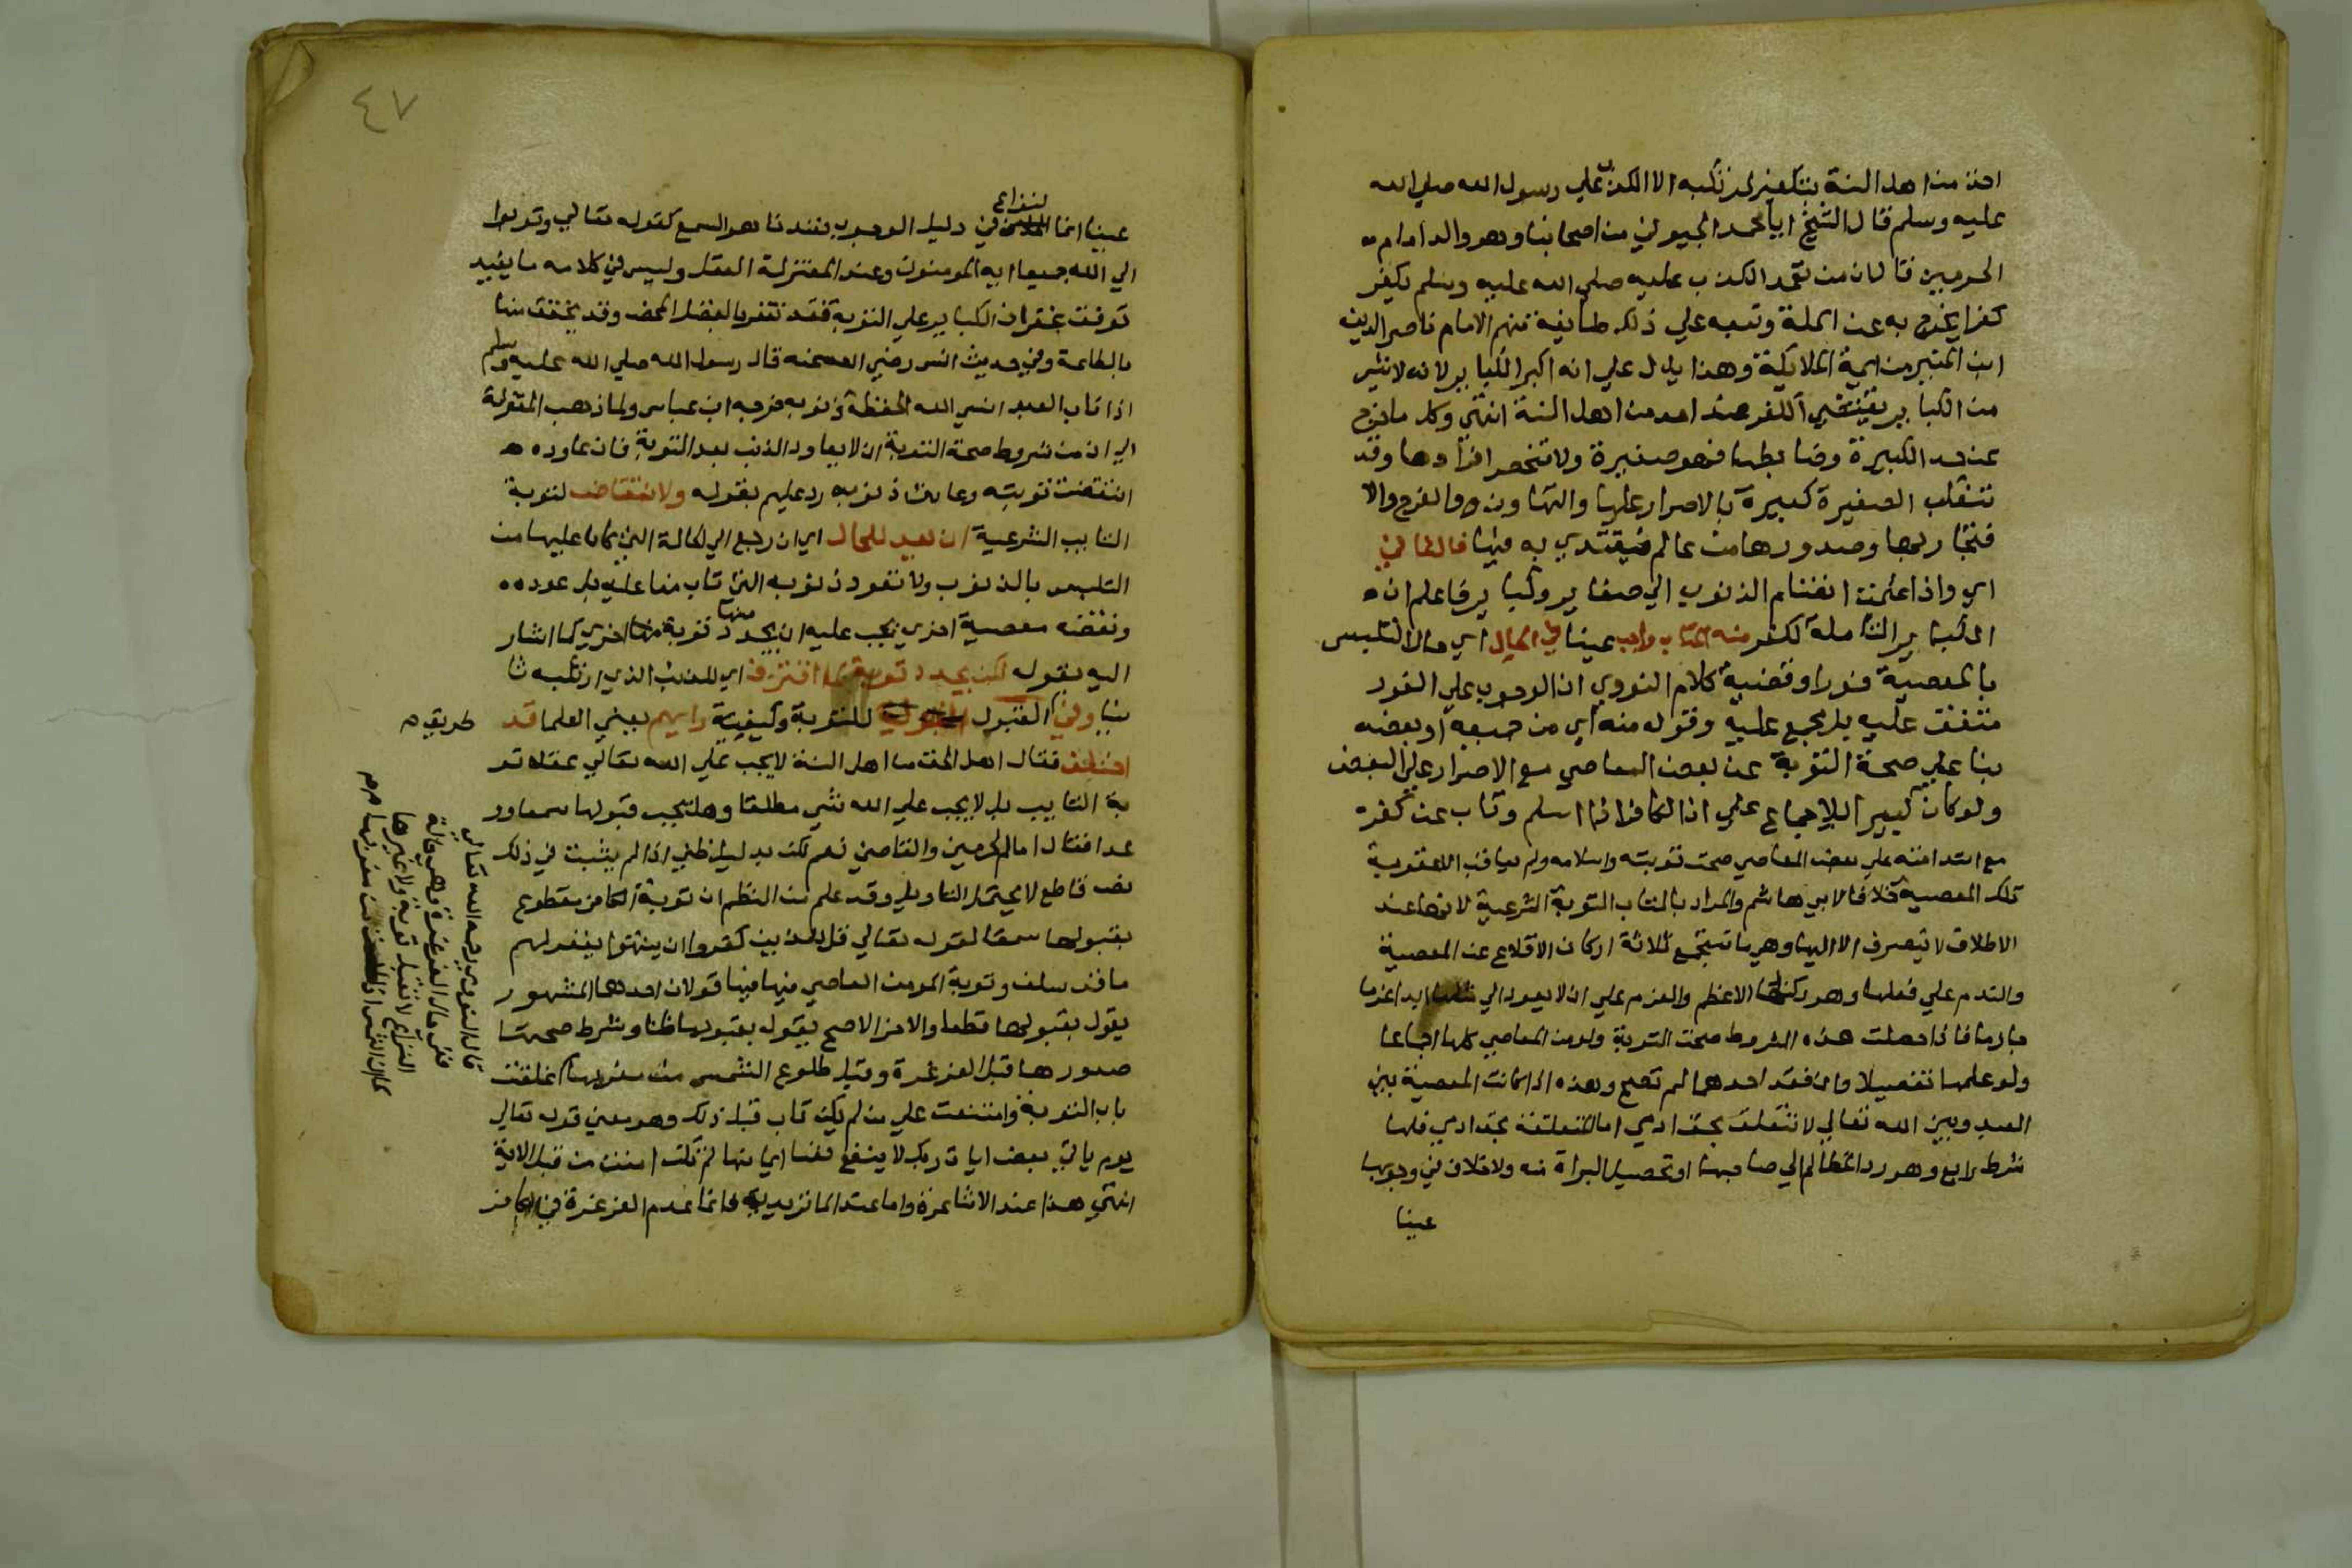 احد من اهل السنة بتكفير مرتكبه الا الكذب علي رسول الله صلي الله
عليه وسلم قال الشيخ ابا محمد الجويني من اصحابنا وهو والد امام
الحرمين قال ان من تعمد الكذب عليه صلي الله عليه وسلم يكفر
كفرا يخرج به عن الملة وتبعه علي ذلك طايفة منهم الامام ناصر الدين
ابن المنير من ايمة المالكية وهذا يدل علي انه اكبر الكباير لانه لا شي
من الكباير يقتضي الكفر عند احد من اهل السنة انتهي وكل ما خرج
عن حد الكبيرة وضابطها فهو صغيرة ولا تنحصر افرادها وقد
تنقلب الصغيرة كبيرة بالاصرار عليها والتهاون والفرح والا
فتخار بها وصدورها من عالم فيقتدي به فيها فالثاني
اي واذا علمت انقسام الذنوب الي صغاير وكباير فاعلم ان
الكباير الشاملة لكفر منه المتاب واجب عينا في الحال اي حال التلبس
بالمعصية فورا وقضية كلام النووي ان الوجوب علي الفور
متفق عليه بل مجمع عليه وقوله منه اي من جميعه او بعضه
بنا علي صحة التوبة عن بعض المعاصي مع الاصرار علي البعض
ولو كان كبير للاجماع علي ان الكافر اذا اسلم وتاب عن كفره
مع استدامته علي بعض المعاصي صحت توبته واسلامه ولم يعاقب الا عقوبة
تلك المعصية خلافا لابي هاشم والمراد بالمتاب التوبة الشرعية لانها عند
الاطلاق لا تنصرف الا اليها وهي ما تستجمع ثلاثة اركان الاقلاع عن المعصية
والندم علي فعلها وهو ركنها الاعظم والعزم علي ان لا يعود الي مثلها ابدا عزما
جازما فاذا حصلت هذه الشروط صحت التوبة ولو من المعاصي كلها اجماعا
ولو علمها تفصيلا وان فقد احدها لم تصح وهذه اذا كانت المعصية بين
العبد وبين الله تعالي لا تتعلق بحق ادمي اما المتعلقة بحق ادمي فلها
شرط رابع وهو رد المظالم الي صاحبها او تحصيل البراة منه ولا خلاف في وجوبها
عينا
٤٧
النزاع
عينا انما في دليل الوجوب فعندنا هو السمع كقوله تعالي وتوبوا
الي الله جميعا ايه المومنون وعند المعتزلة العقل وليس في كلامه ما يفيد
توقف غفران الكباير علي التوبة فقد تغفر بالفضل المحض وقد يخفف منها
بالطاعة وفي حديث انس رضي الله عنه قال رسول الله صلي الله عليه وسلم
اذا تاب العبد انسي الله الحفظة ذنوبه خرجه ابن عباس ولما ذهب المعتزلة
الي ان من شروط صحة التوبة ان لا يعاود الذنب بعد التوبة فان عاوده
انتقضت توبته وعادت ذنوبه رد عليهم بقوله ولا انتقاض لتوبة
التايب الشرعية ان يعد للحال اي ان رجع الي الحالة التي كان عليها من
التلبس بالذنوب ولا تعود ذنوبه التي تاب منها عليه بل عوده
ونقضه معصية اخري يجب عليه ان يجدد منها توبة اخري كما اشار
اليه بقوله لكن يجدد توبة لما اقترف اي للذنب الذي ارتكبه ثا
نيا وفي القبول للتوبة وكيفية رايهم يعني العلما قد
طريقه
اختلف فقال اهل الحق من اهل السنة لا يجب علي الله تعالي عقلا تو
بة التايب بل لا يجب علي الله شي مطلقا وهل يجب قبولها سمعا وو
عدا فقال امام الحرمين والقاضي نعم لكن بدليل ظني اذ لم يثبت في ذلك
نص قاطع لا يحتمل التاويل وقد علم من النظم ان توبة الكافر مقطوع
بقبولها سمعا لقوله تعالي قل للذين كفروا ان ينتهوا يغفر لهم
ما قد سلف وتوبة المومن العاصي فيها قولان احدهما المشهور
يقول بقبولها قطعا والاخر الاصح يقول بقبولها ظنا وشرط صحتها
صدورها قبل الغرغرة وقبل طلوع الشمس من مغربها غلقت
باب التوبة وامتنعت علي من لم يكن تاب قبل ذلك وهو معني قوله تعالي
يوم ياتي بعض ايات ربك لا ينفع نفسا ايمانها لم تكن امنت من قبل الاية
انتهي هذا عند الاشاعرة واما عند الماتريدية فانما عدم الغرغرة في الكافر
قال النووي رحمه الله تعالي
ففي حال الغرغرة وهي حالة
النزع لا تقبل توبة ولا غيرها